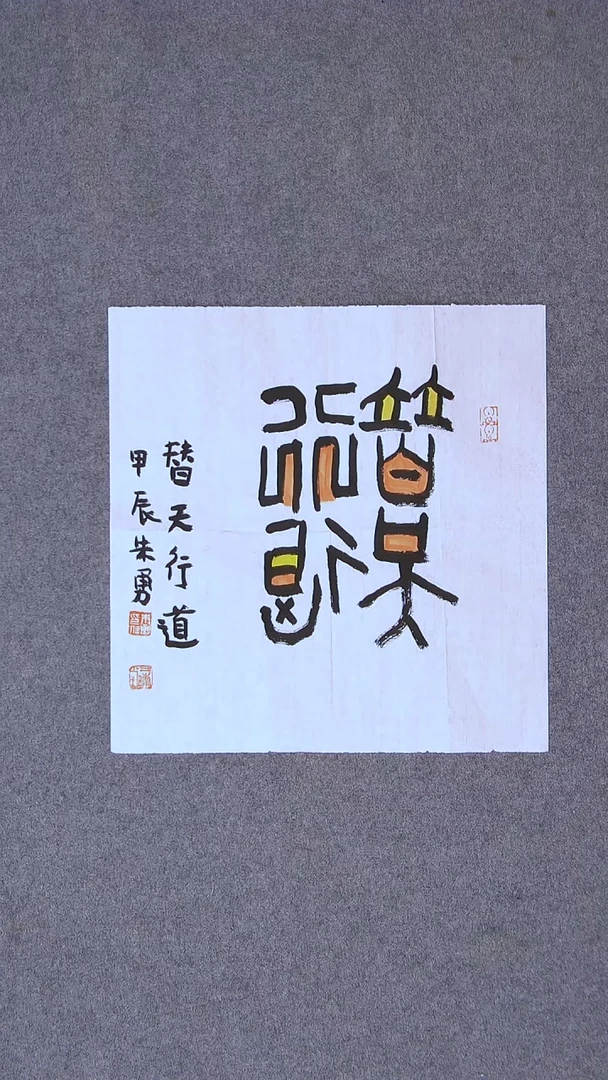 替天
行道
替天行道
甲辰朱勇